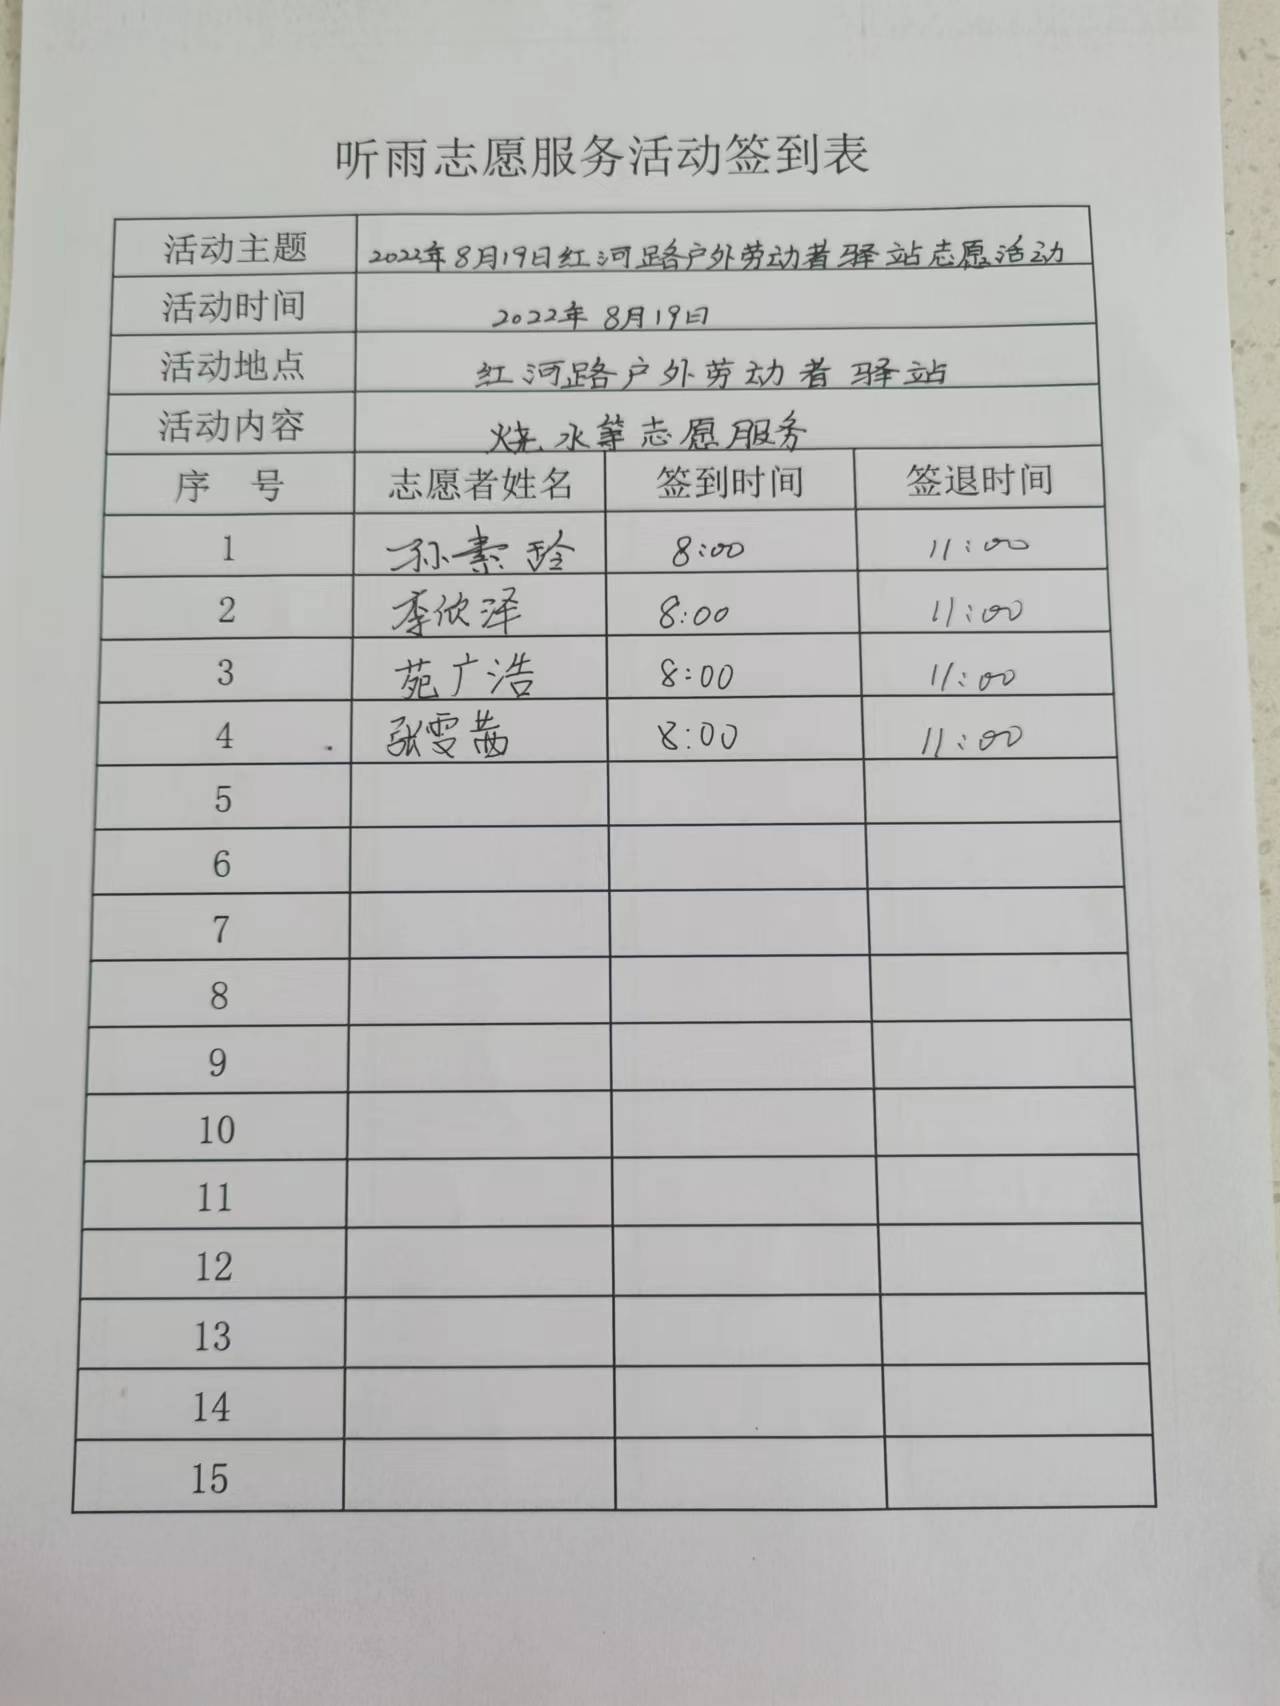 听雨志愿服务活动签到表
活动主题 2022年8月19日红河路户外劳动者驿站志愿活动
活动时间 2022年8月19日
活动地点 红河路户外劳动者驿站
活动内容 烧水等志愿服务
序 号 志愿者姓名 签到时间 签退时间
1 孙素玲 8:00 11:00
2 李欣泽 8:00 11:00
3 苑广浩 8:00 11:00
4 张雯茜 8:00 11:00
5
6
7
8
9
10
11
12
13
14
15